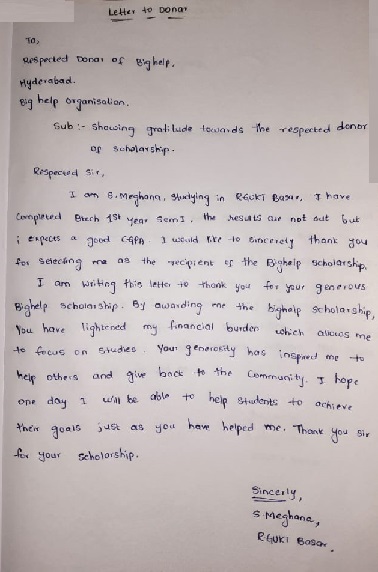 Letter to Donar
To,
Respected Donar of Bighelp.
Hyderabad.
Big help Organisation.
Sub :- Showing gratitude towards the respected donor
of scholarship.
Respected Sir,
I am S.Meghana, studying in RGUKT Basar, I have
Completed Btech 1st year Sem1. the results are not out but
i expects a good CGPA. I would like to sincerely thank you
for Selecting me as the recipient of the Bighelp scholarship.
I am writing this letter to thank you for your generous
Bighelp scholarship. By awarding me the bighelp scholarship,
You have lightened my financial burden which allows me
to focus on studies. Your generosity has inspired me to
help others and give back to the Community. I hope
one day I will be able to help students to achieve
their goals just as you have helped me. Thank you sir
for your scholarship.
Sincerly,
S.Meghana,
RGUKT Basar.